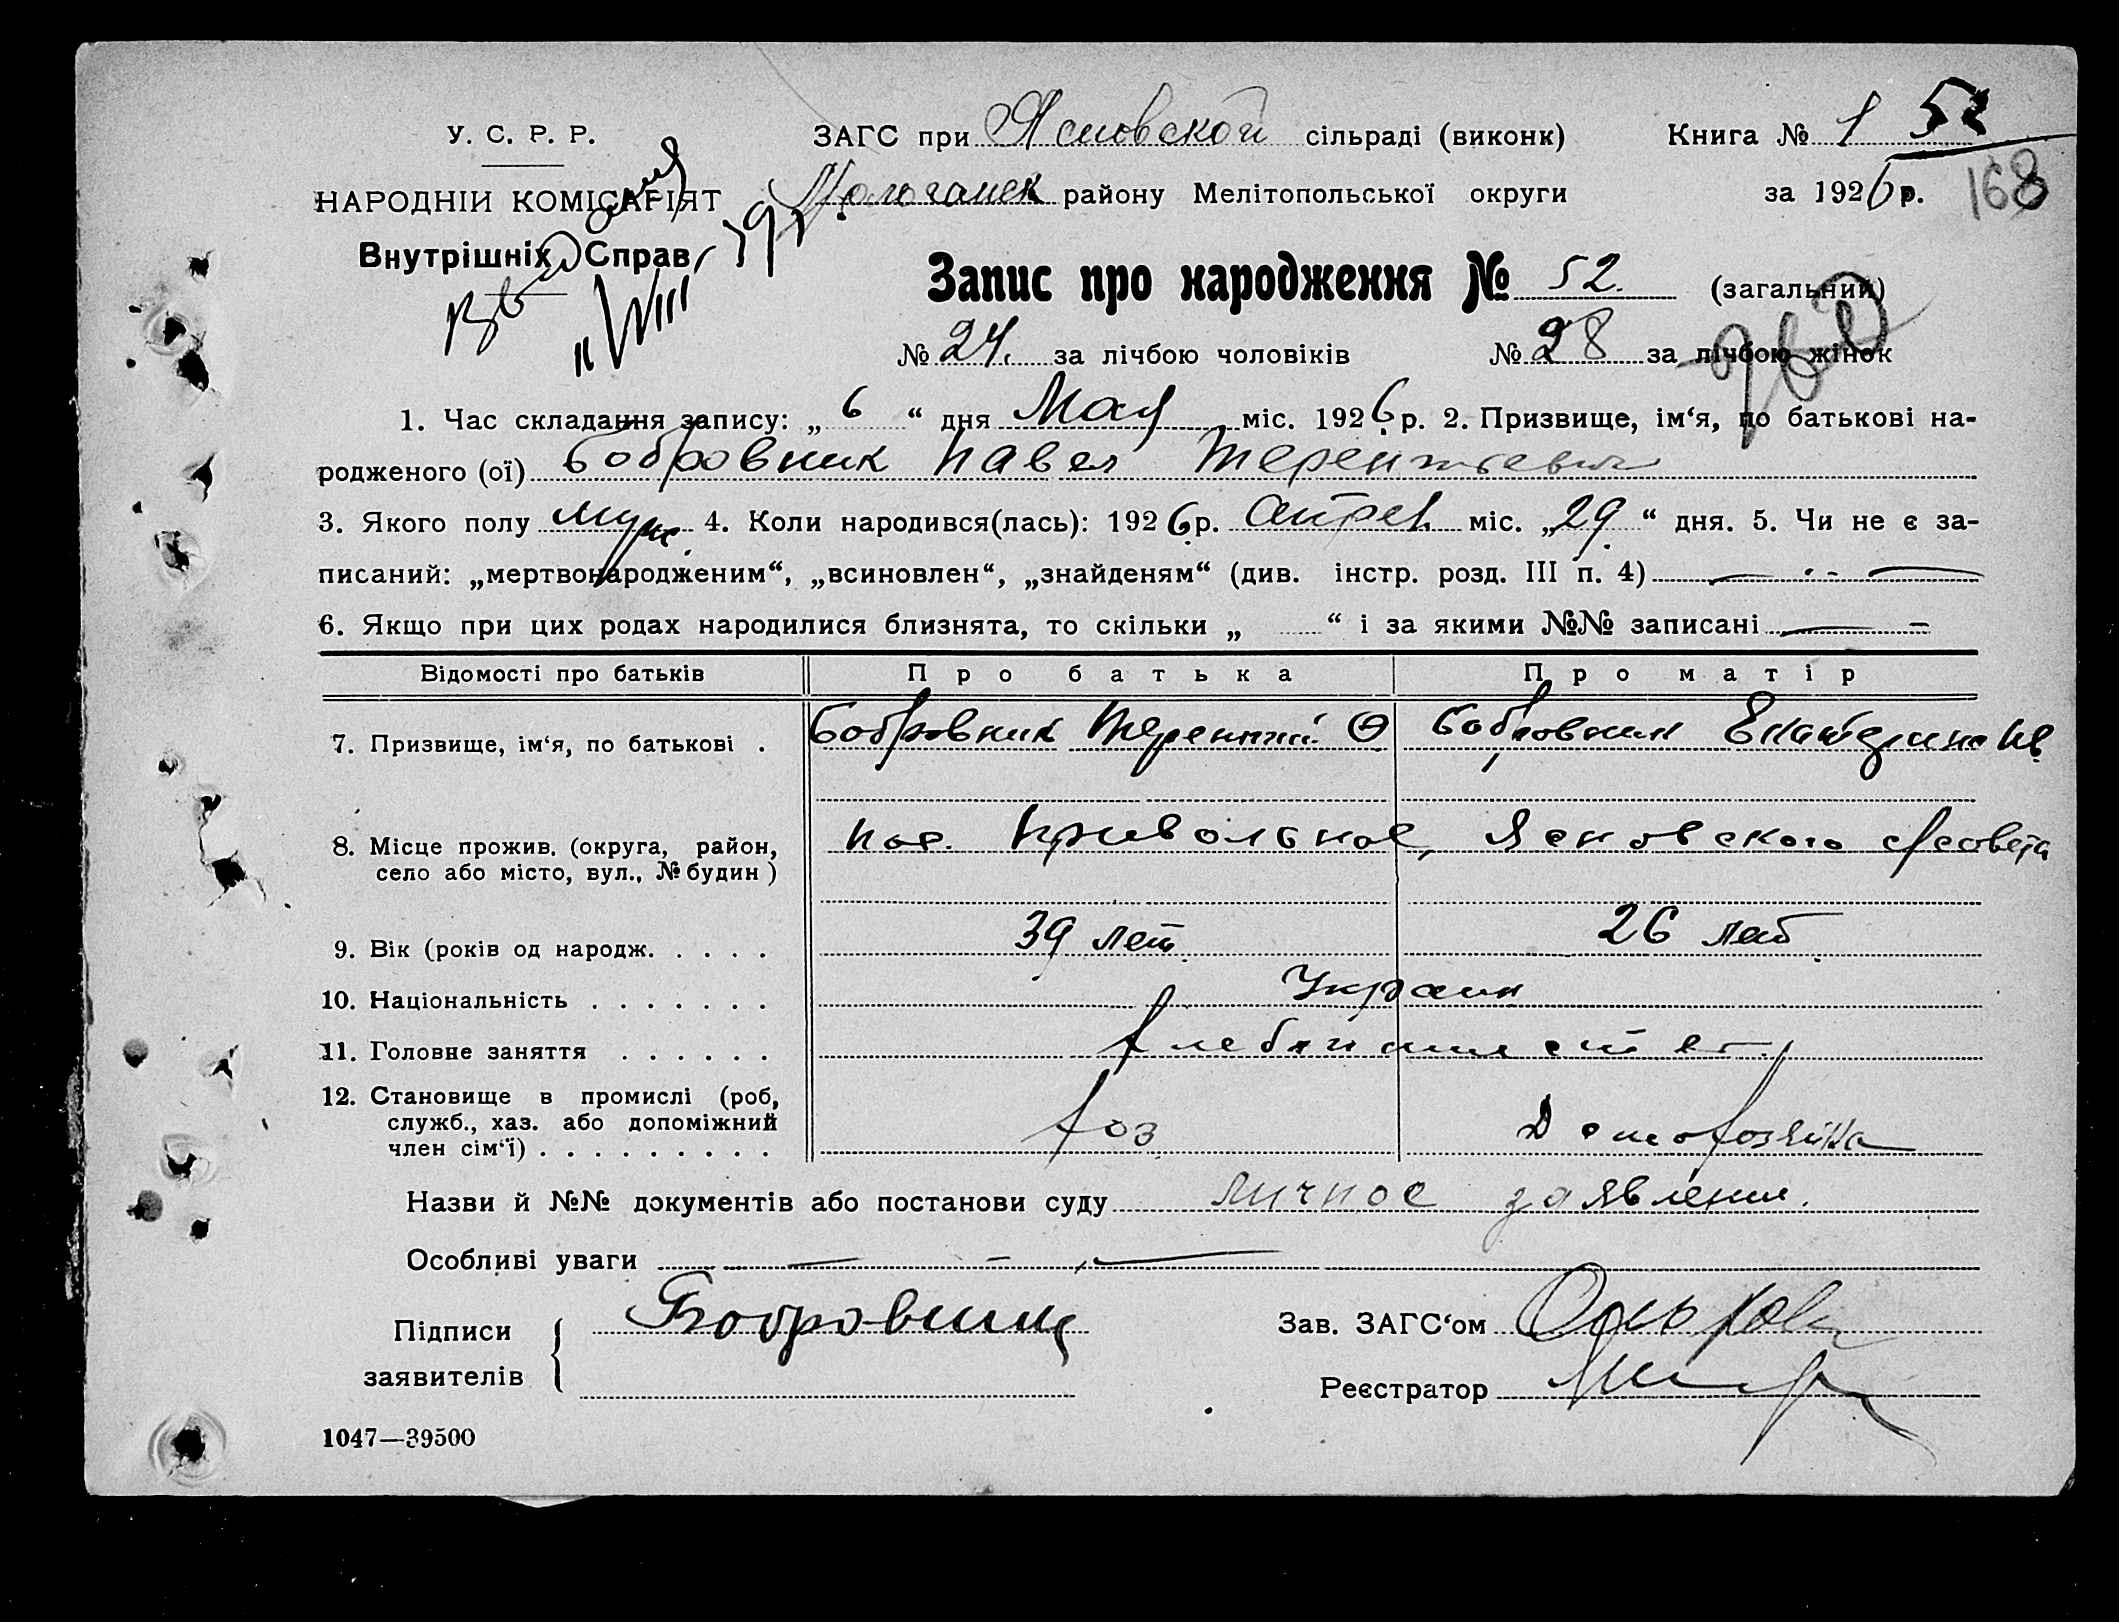 У. С. Р. Р.
НАРОДНІИ КОМІСАРІЯТ
Внутрішніх Справ
ЗАГС при Ясновской сільраді (виконк) Книга № 1 52
района Мелітопольської округи за 1926 р. 168
Запис про народження № 52. (загальний)
№ 24. за лічбою чоловіків № 28 за лічбою жінок
1. Час складання запису: „ 6 “ дня Мая міс. 1926 р. 2. Призвище, ім‘я, по батькові на-
родженого (ої) Бобровник Павел Терентьевич
3. Якого полу муж. 4. Коли народився(лась): 1926 р. Апрел. міс. „ 29 “ дня. 5. Чи не є за-
писаний: „мертвонародженим“, „всиновлен“, „знайденям“ (див. інстр. розд. III п. 4) —
6. Якщо при цих родах народилися близнята, то скільки „ “ і за якими №№ записані —
Відомості про батьків Про батька Про матір
7. Призвище, ім‘я, по батькові . Бобровник Терентий Ѳ Бобровник Екатерина Ив
8. Місце прожив. (округа, район, пос. Привольное, Ясновского с/совета
село або місто, вул., № будин )
9. Вік (років од народж. . . . . 39 лет 26 лет
10. Національність . . . . . . . Украин
11. Головне заняття . . . . . . хлебопашест
12. Становище в промислі (роб, хоз Домохозяйка
служб., хаз. або допоміжний
член сім‘ї) . . . . . . . . .
Назви й №№ документів або постанови суду личное заявление.
Особливі уваги — - —
Підписи Бобровник Зав. ЗАГС‘ом
заявителів Реєстратор
1047—39500